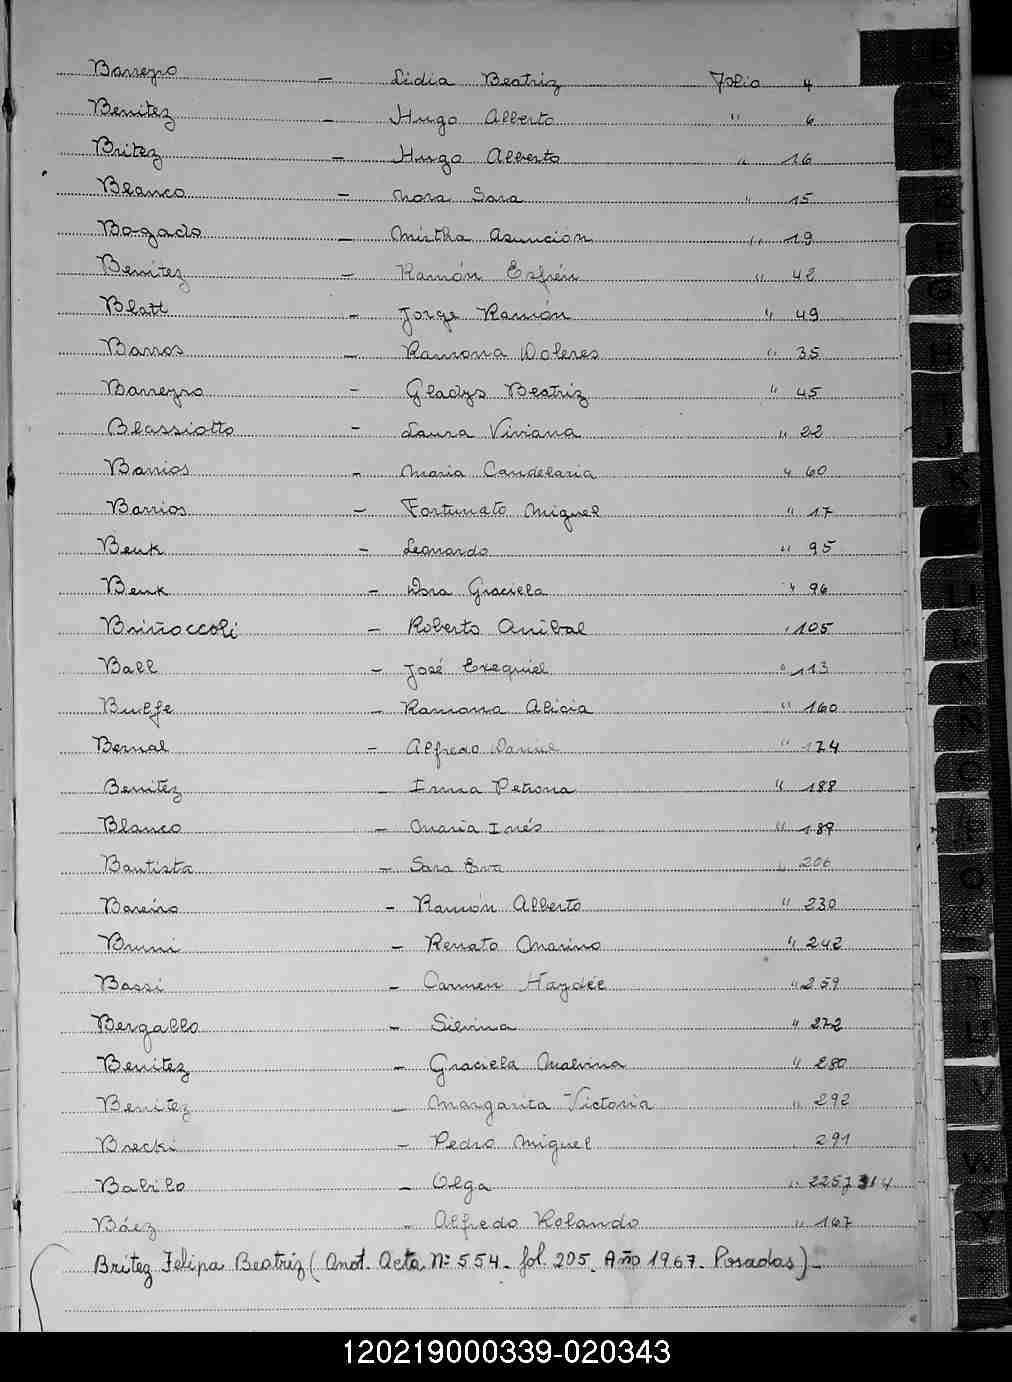 Barreyro - Lidia Beatriz Folio 4
Benitez - Hugo Alberto " 6
Britez - Hugo Alberto " 16
Blanco - Nora Sara " 15
Bogado - Mirtha Asunción " 19
Benitez - Ramón Esfrén " 42
Blatt - Jorge Ramón " 49
Barros - Ramona Dolores " 35
Barreyro - Gladys Beatriz " 45
Blassiotto - Laura Viviana " 22
Barrios - Maria Candelaria " 60
Barrios - Fortunato Miguel " 17
Benk - Leonardo " 95
Benk - Dora Graciela " 96
Briñoccoli - Roberto Anibal " 105
Ball - José Exequiel " 113
Bulfe - Ramona Alicia " 160
Bernal - Alfredo Daniel " 174
Benitez - Irma Petrona " 188
Blanco - Maria Inés " 189
Bautista - Sara Eva " 206
Bareiro - Ramón Alberto " 230
Bruni - Renato Marino " 242
Bassi - Carmen Haydée " 259
Bergallo - Silvina " 272
Benitez - Graciela Malvina " 280
Benitez - Margarita Victoria " 292
Brecki - Pedro Miguel 291
Babilo - Olga "
Báez - Alfredo Rolando " 167
Britez Felipa Beatriz (Anot. Acta Nº 554. fol. 205. Año 1967. Posadas)-
120219000339-020343